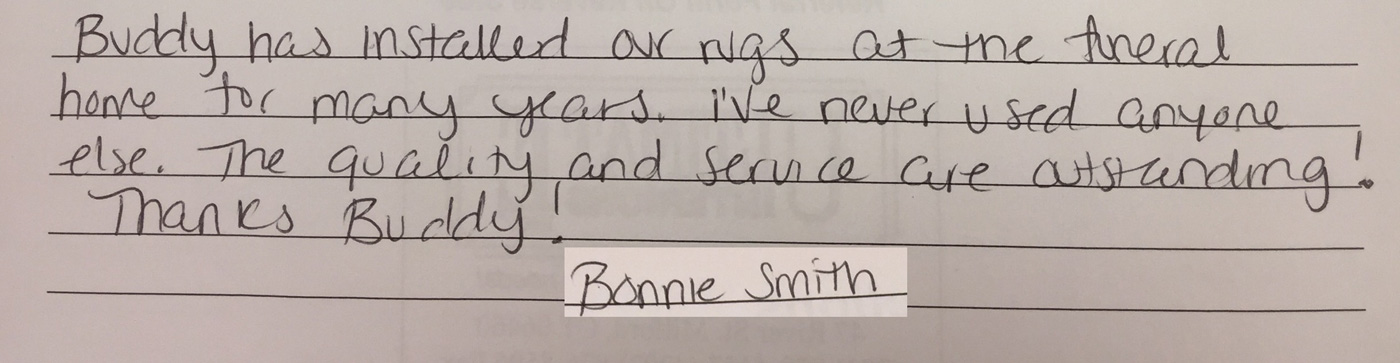 Buddy has installed our rugs at the funeral
home for many years. I've never used anyone
else. The quality and service are outstanding!
Thanks Buddy!
Bonnie Smith